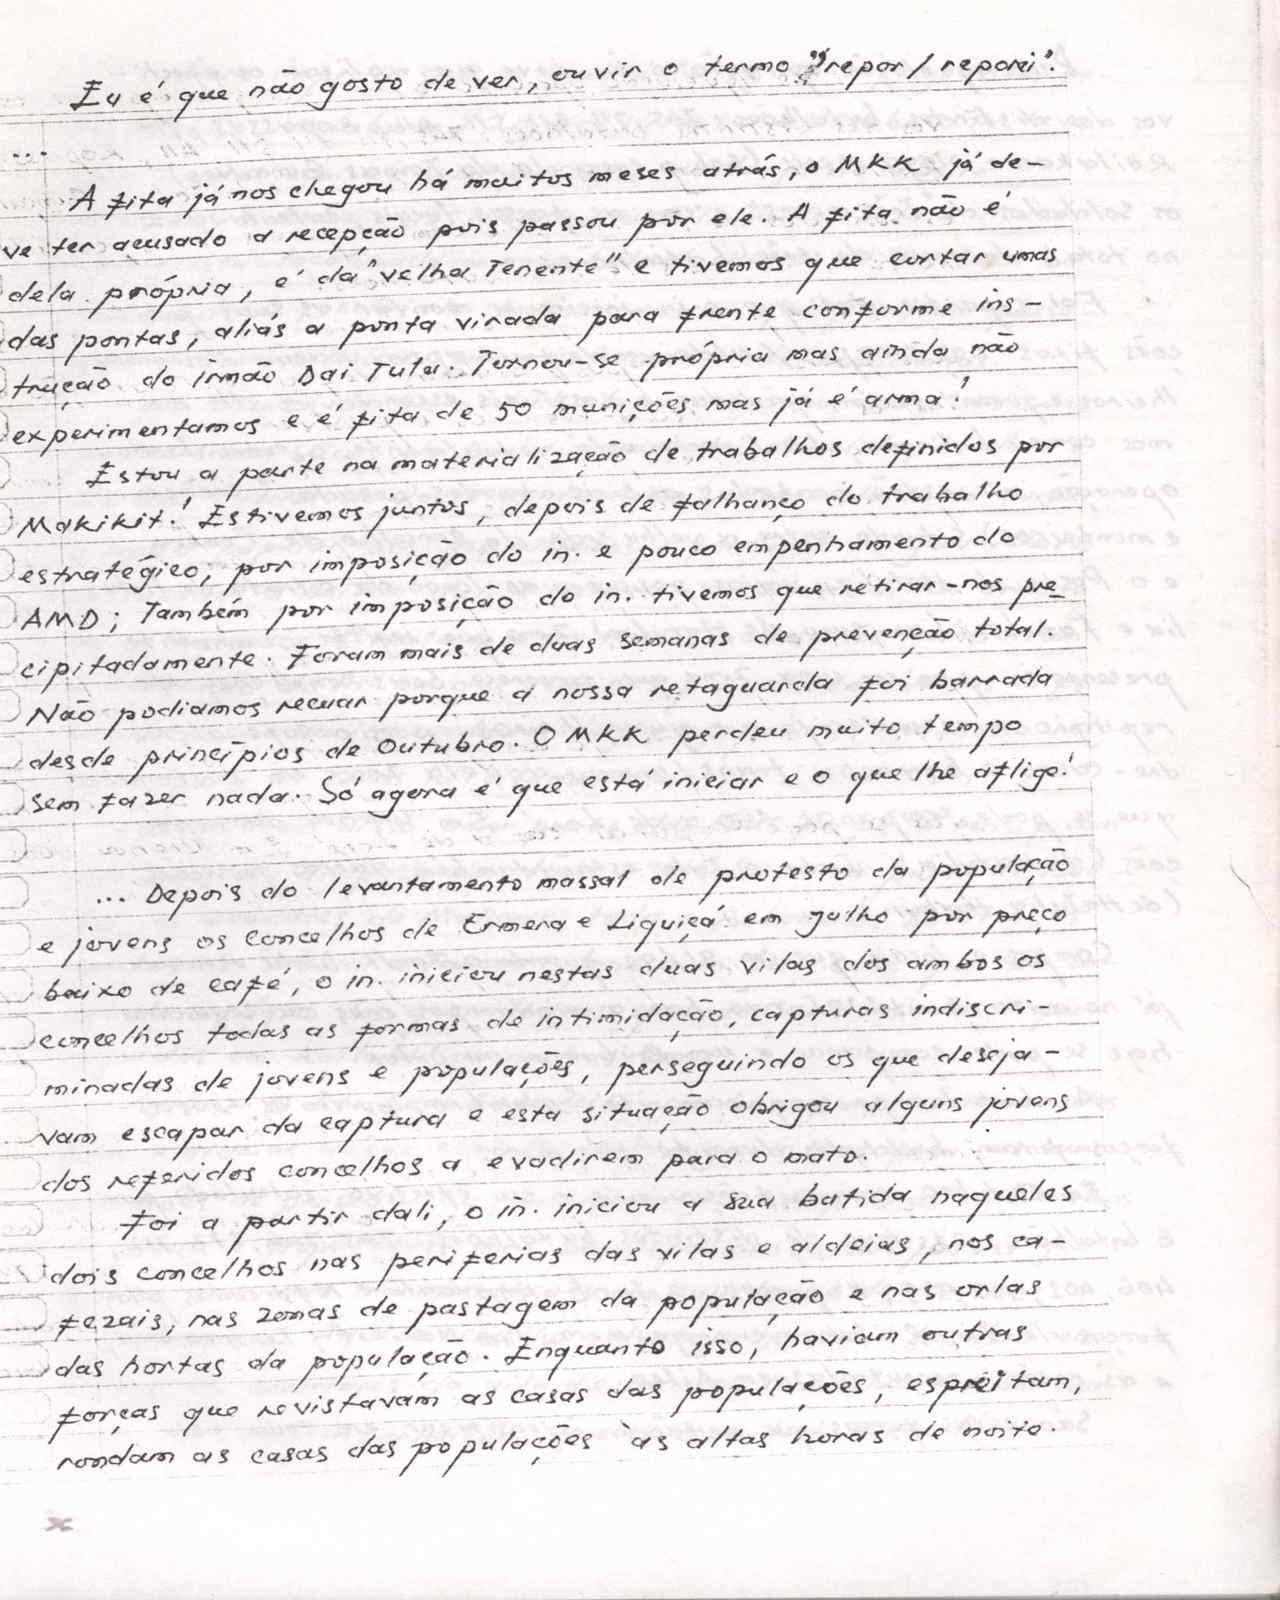 Eu é que não gosto de ver, ouvir o termo "repor / reporei".
...
A fita já nos chegou há muitos meses atrás, o MKK já de-
ve ter acusado a recepção pois passou por ele. A fita não é
dela própria, é da "velha Tenente" e tivemos que cortar umas
das pontas, aliás a ponta virada para frente conforme ins-
trução do irmão Dai Tulu. Tornou-se própria mas ainda não
experimentamos e é fita de 50 munições mas já é arma!
Estou a parte na materialização de trabalhos definidos por
Makikit! Estivemos juntos, depois de falhanço do trabalho
estratégico, por imposição do in. e pouco empenhamento do
AMD; Também por imposição do in. tivemos que retirar-nos pre
cipitadamente. Foram mais de duas semanas de prevenção total.
Não podiamos recuar porque a nossa retaguarda foi barrada
desde princípios de Outubro. O MKK perdeu muito tempo
sem fazer nada. Só agora é que está iniciar e o que lhe aflige!
... Depois do levantamento massal de protesto da população
e jovens os concelhos de Ermera e Liquiçá em Julho por preço
baixo de café, o in. iniciou nestas duas vilas dos ambos os
concelhos todas as formas de intimidação, capturas indiscri-
minadas de jovens e populações, perseguindo os que deseja-
vam escapar da captura e esta situação obrigou alguns jovens
dos referidos concelhos a evadirem para o mato.
Foi a partir dali, o in. iniciou a sua batida naqueles
dois concelhos nas periferias das vilas e aldeias, nos ca-
fezais, nas zonas de pastagem da população e nas orlas
das hortas da população. Enquanto isso, haviam outras
forças que revistavam as casas das populações, espreitam,
rondam as casas das populações às altas horas de noite.
x